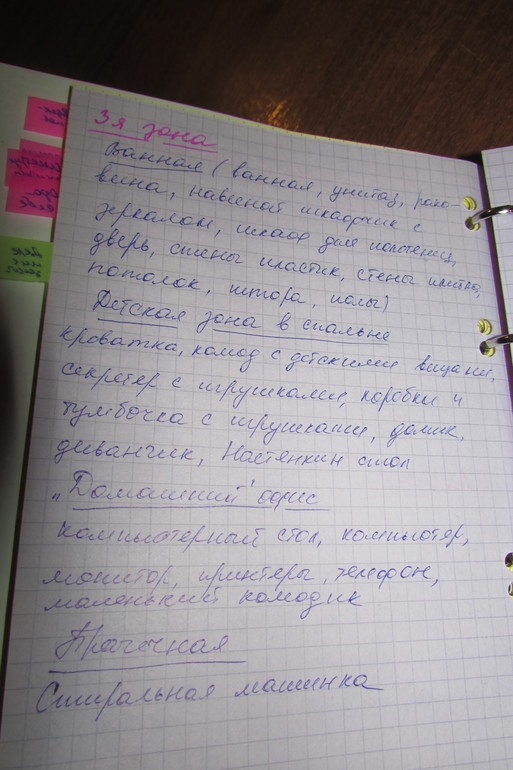 3я зона
Ванная (ванная, унитаз, рако-
вина, навесной шкафчик с
зеркалом, шкаф для полотенец,
дверь, стены пластик, стены плитка,
потолок, штора, полы)
Детская зона в спальне
кроватка, комод с детскими вещами,
секретер с игрушками, коробки и
тумбочка с игрушками, домик,
диванчик, Настенкин стол
„Домашний" офис
компьютерный стол, компьютер,
монитор, принтеры, телефон,
маленький комодик
Прачечная
Стиральная машинка